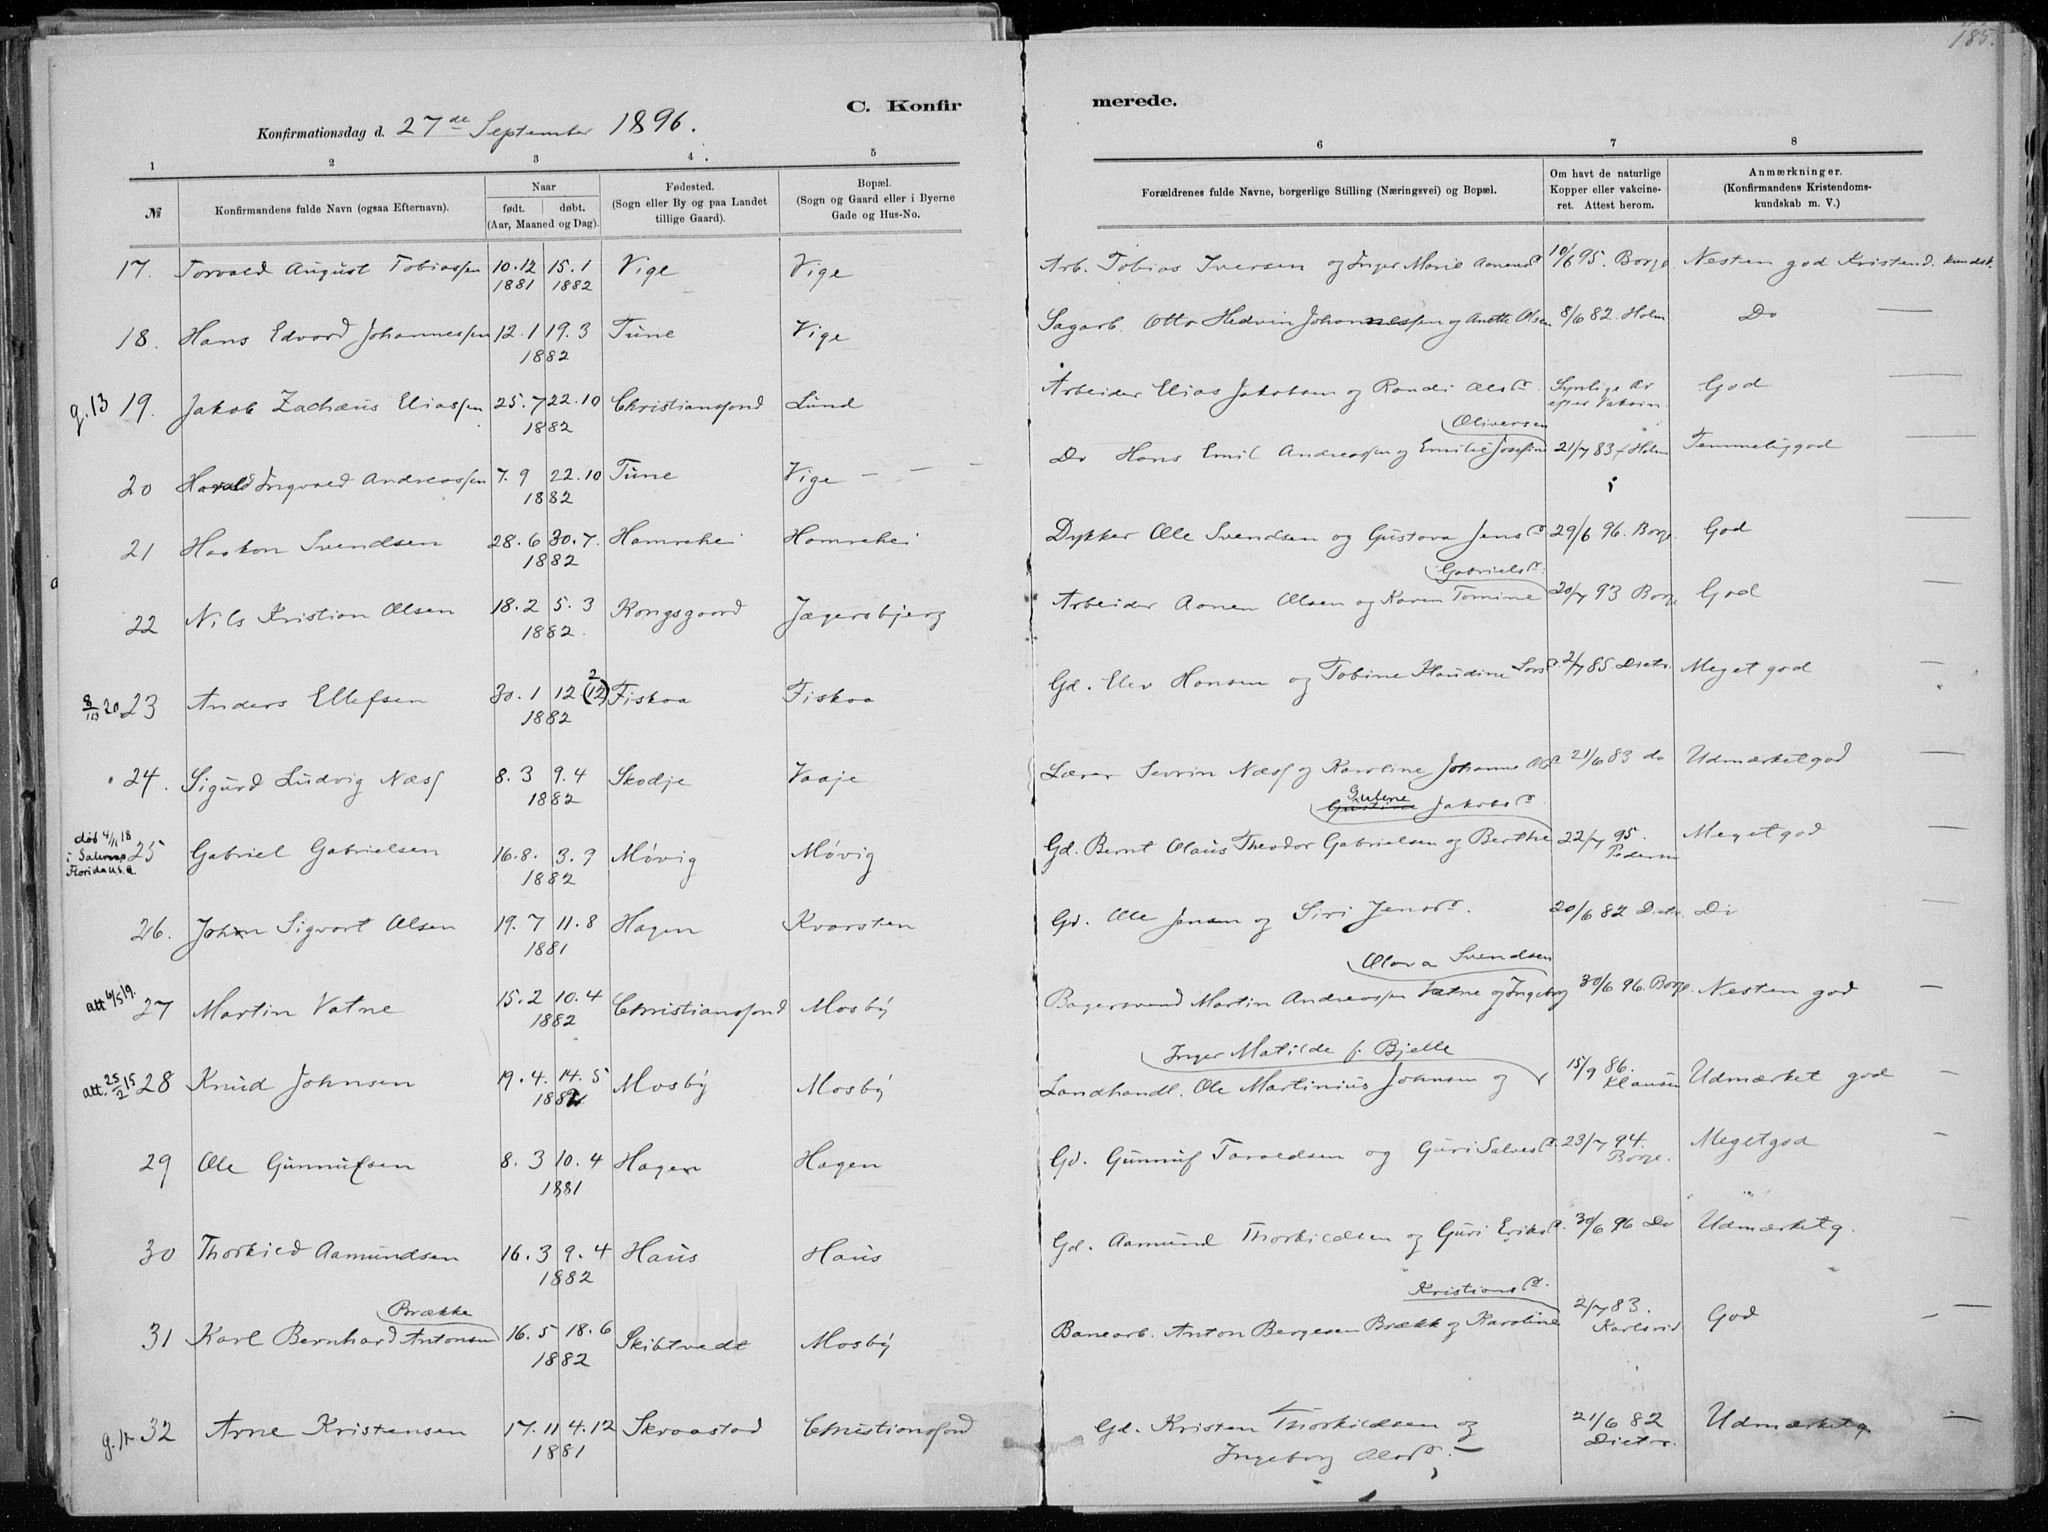 185.
C. Konfir merede.
Konfirmationsdag d. 27de September 1896.
1 2 3 4. 5 6 7 8
№ Konfirmandens fulde Navn (ogsaa Efternavn). Naar født. døbt. (Aar, Maaned og Dag). Fødested. (Sogn eller By og paa Landet tillige Gaard). Bopæl. (Sogn og Gaard eller i Byerne Gade og Hus-No. Forældrenes fulde Navne, borgerlige Stilling (Næringsvei) og Bopæl. Om havt de naturlige Kopper eller vakcineret. Attest herom. Anmærkninger. (Konfirmandens Kristendomskundskab m. V.)
17. Torvald August Tobiassen 10.12 1881 15.1 1882 Vige Vige Arb. Tobias Iversen og Inger Marie Aanensd 10/6 95. Borge Nesten god Kristend. kundsk.
18. Hans Edvard Johannessen 12.1 19.3 1882 Tune Vige Sagarb. Otto Hedvin Johannessen og Anette Olsen 8/6 82. Holm Do —
g. 13 19. Jakob Zachæus Eliassen 25.7 22.10 1882 Christianssand Lund Arbeider Elias Jakobsen og Randi Olsd. Synlige Ar efter Vakcin. God —
20 Harald Ingvald Andreassen 7.9 22.10 1882 Tune Vige — — — Do Hans Emil Andreassen og Emilie Josefine Oliversen 21/7 83 Holm Temmelig god —
21 Haakon Svendsen 28.6 30.7. 1882 Hamrehei Hamrehei Dykker Ole Svendsen og Gustava Jensd 29/6 96. Borge. God —
22 Nils Kristian Olsen 18.2 5.3 1882. Kongsgaard Jægersbjerg Arbeider Aanen Olsen og Karen Tomine Gabrielsd. 20/7 93 Borge God —
8/10 20 23 Anders Ellefsen 30.1 12 (12) 2 1882 Fiskaa Fiskaa Gd. Elev Hansen og Tobine Klaudine Larsd. 2/7 85. Dietr. Meget god —
24. Sigurd Ludvig Næss 8.3 9.4 1882 Skodje Vaaje Lærer Sevrin Næss og Karoline Johanne 21/6 83 do Udmærket god —
død 4/1 18 i Florida U.S.A. 25 Gabriel Gabrielsen 16.8. 3.9 1882 Møvig Møvig Gd. Bernt Olaus Theodor Gabrielsen og Berthe Gurine Jakobsd. 22/7 95. Pedersen Meget god —
26. John Sigvart Olsen 19.7 11.8 1881 Hagen Kvarsten Gd. Ole Jensen og Siri Jensd. 20/6 82 Dietr. Do —
att 6/5 19. 27 Martin Vatne 15.2 10.4 1882 Christianssand Mosby Bagersvend Martin Andreassen Vatne og Ingeborg Olava Svendsen 30/6 96. Borge. Nesten god —
att. 25/2 15 28 Knud Johnsen 19.4. 14.5 1882 Mosby Mosby Landhandl. Ole Martinius Johnsen og Inger Matilde f. Bjelle 15/9 86. Klausen Udmærket god —
29 Ole Gunnufsen 8.3 10.4 1881 Hagen Hagen Gd. Gunnuf Taraldsen og Guri Salvesd. 23/7 94. Borge. Meget god —
30 Thorkild Aamundsen 16.3 9.4 1882 Haus Haus Gd. Aamund Thorkildsen og Guri Eriksd. 30/6 96 Do Udmærket g. —
31 Karl Bernhard Antonsen Brække 16.5 18.6 1882 Skibtvedt Mosby Banearb. Anton Bergesen Brække og Karoline Kristiansd. 2/7 83. God —
32 Arne Kristensen 17.11 4.12 1881 Skraastad Christianssand Gd. Kristen Thorkildsen og Ingeborg Olavsd. 21/6 82 Dietr. Udmærket g. —